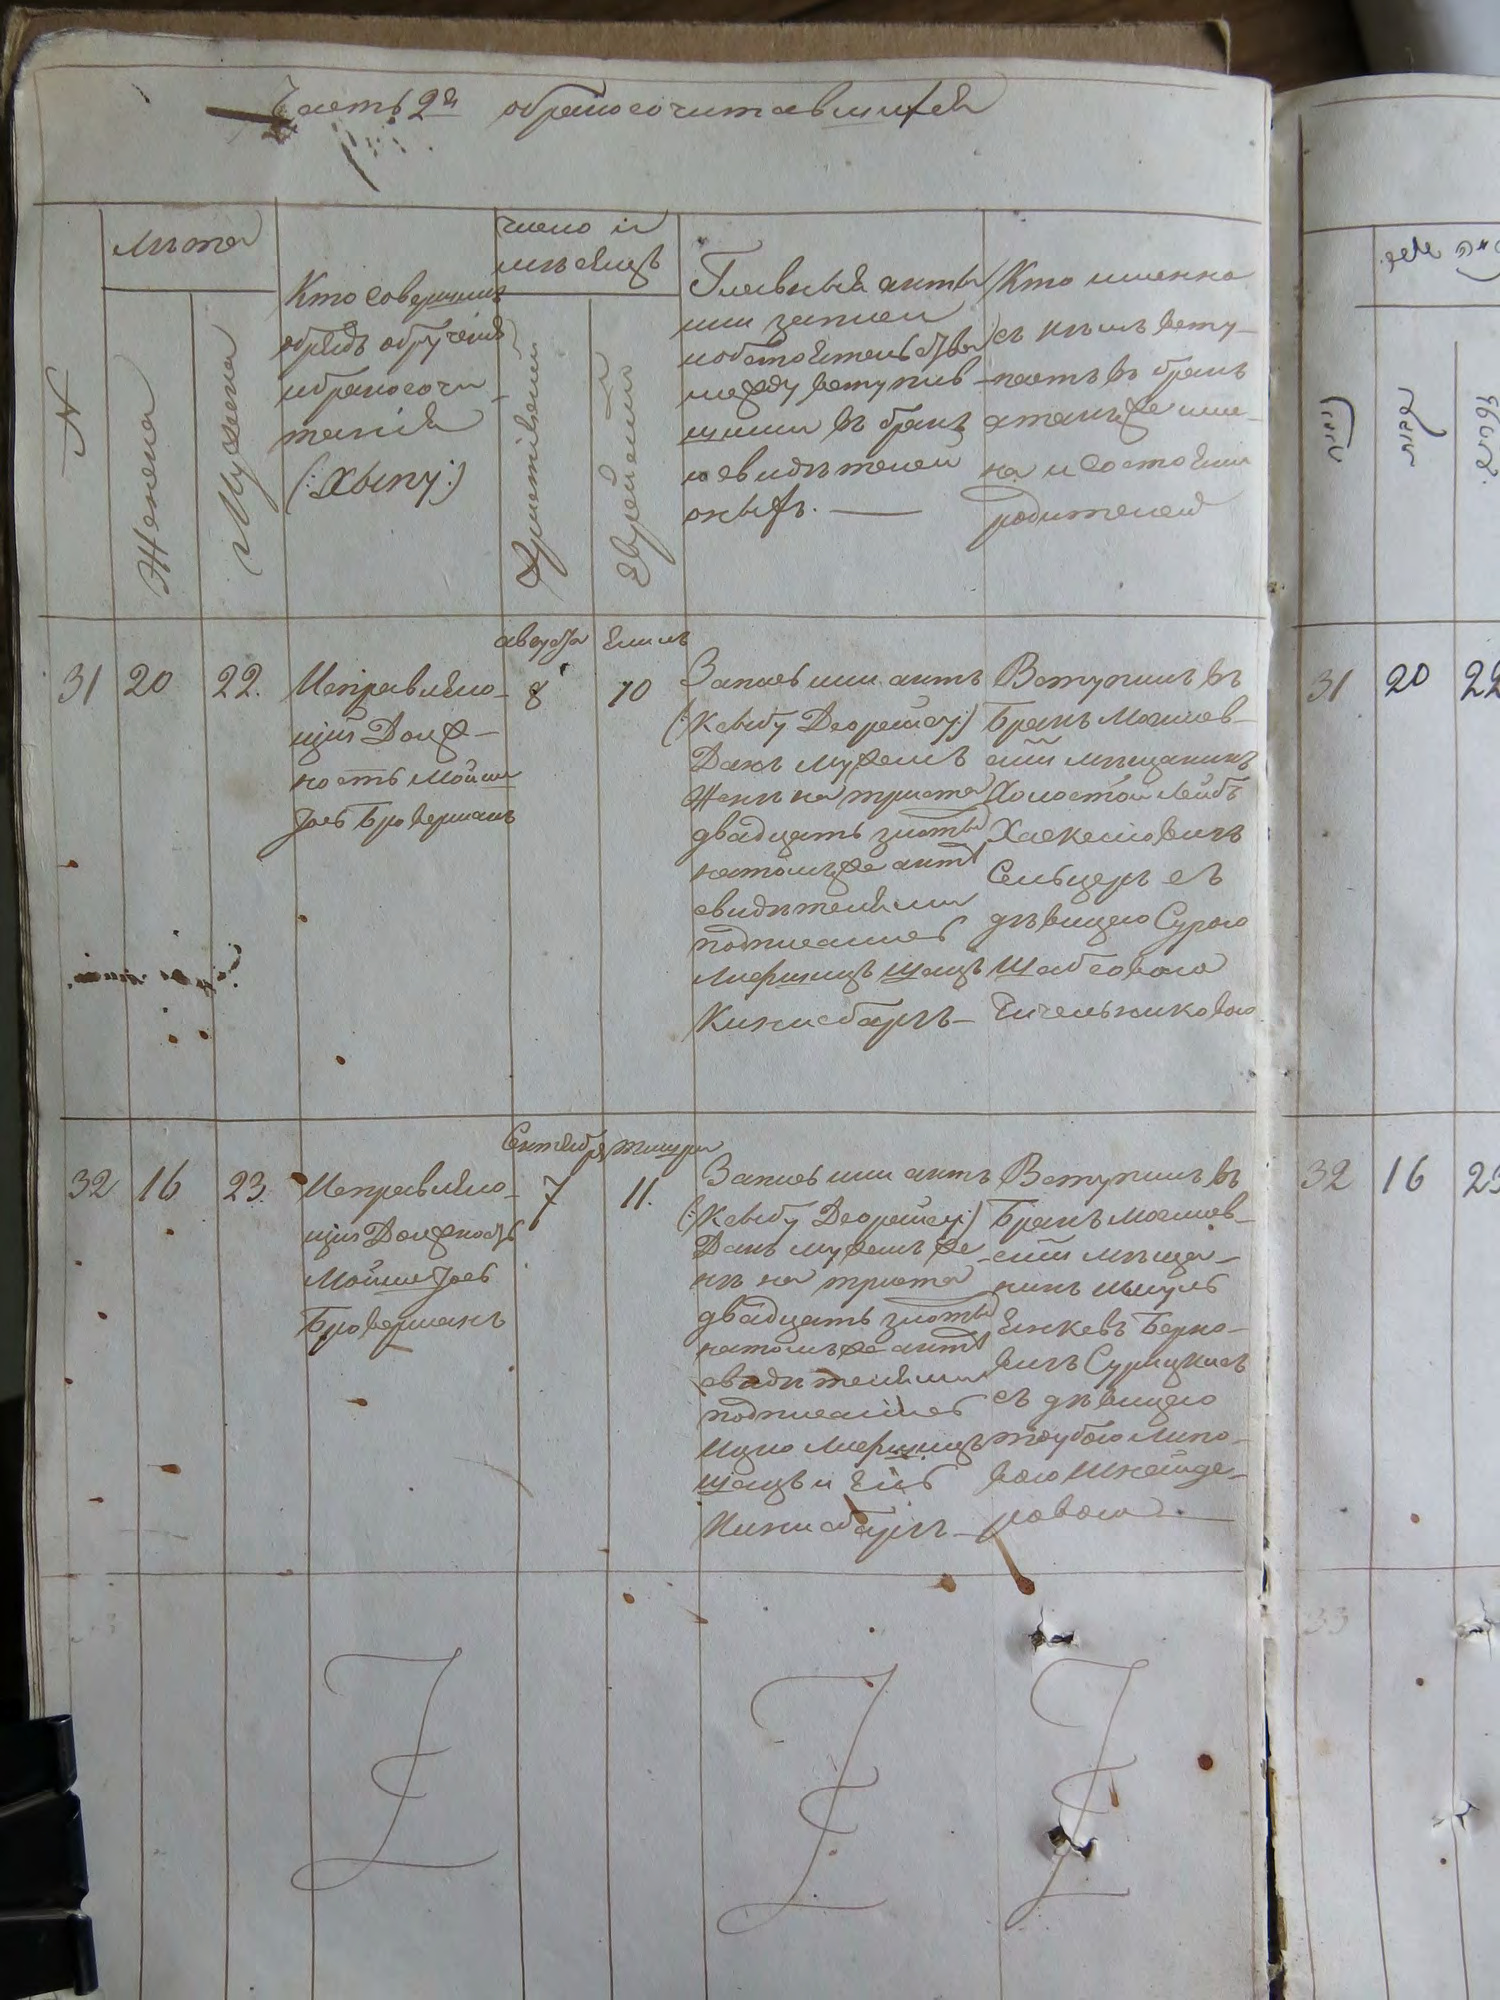 Часть 2я обракосочитавшихся
№
лета
Женска
Мужеска
Кто совершилъ
обрядъ обрученія
ибракосочи
танія
(:Хыпу:)
число и
мѣсяцъ
Християнский
Еврейский
Главный акты
или записи
иобстоятельства
между вступив
шими въ бракъ
исвидѣтелей
оныхъ.
Кто именно
съ кѣмъ всту-
паетъ въ бракъ
атакъже име-
на и состояніи
родителей
31
20
22.
Исправляю-
щій Долж-
ность Мойше
Іось Броверманъ
августа
8
Елиль
10
Запись или актъ
(:Ксыбу Деорейсу:)
Данъ мужемъ
Женѣ на триста
двадцать злоты
натомъже актѣ
свидѣтелями
подписались
Кинисбергъ
Вступилъ въ
Бракъ Могилев-
скій мѣщанинъ
Холостой Лейбъ
Хаскелювичъ
Сельцеръ съ
дѣвицею Сурою
Шабсовою
Гичельниковою
32
16
23.
Исправляю-
щій Должность
Мойше Іось
Броверманъ
Сентября
7
тишри
11.
Запись или актъ
(:Ксыбу Деорейсу:)
Данъ мужемъ же-
нѣ на триста
двадцать злоты
натомъже актѣ
свидѣтелями
подписались
Кинисбергъ
Вступилъ въ
Бракъ Могилев-
скій мѣща-
нинъ Шмуль
Янкевъ Берко-
вичъ Сурицкисъ
съ дѣвицею
таубою Липо-
вою Шнейде-
ровою
31 20 22
32 16 23
33